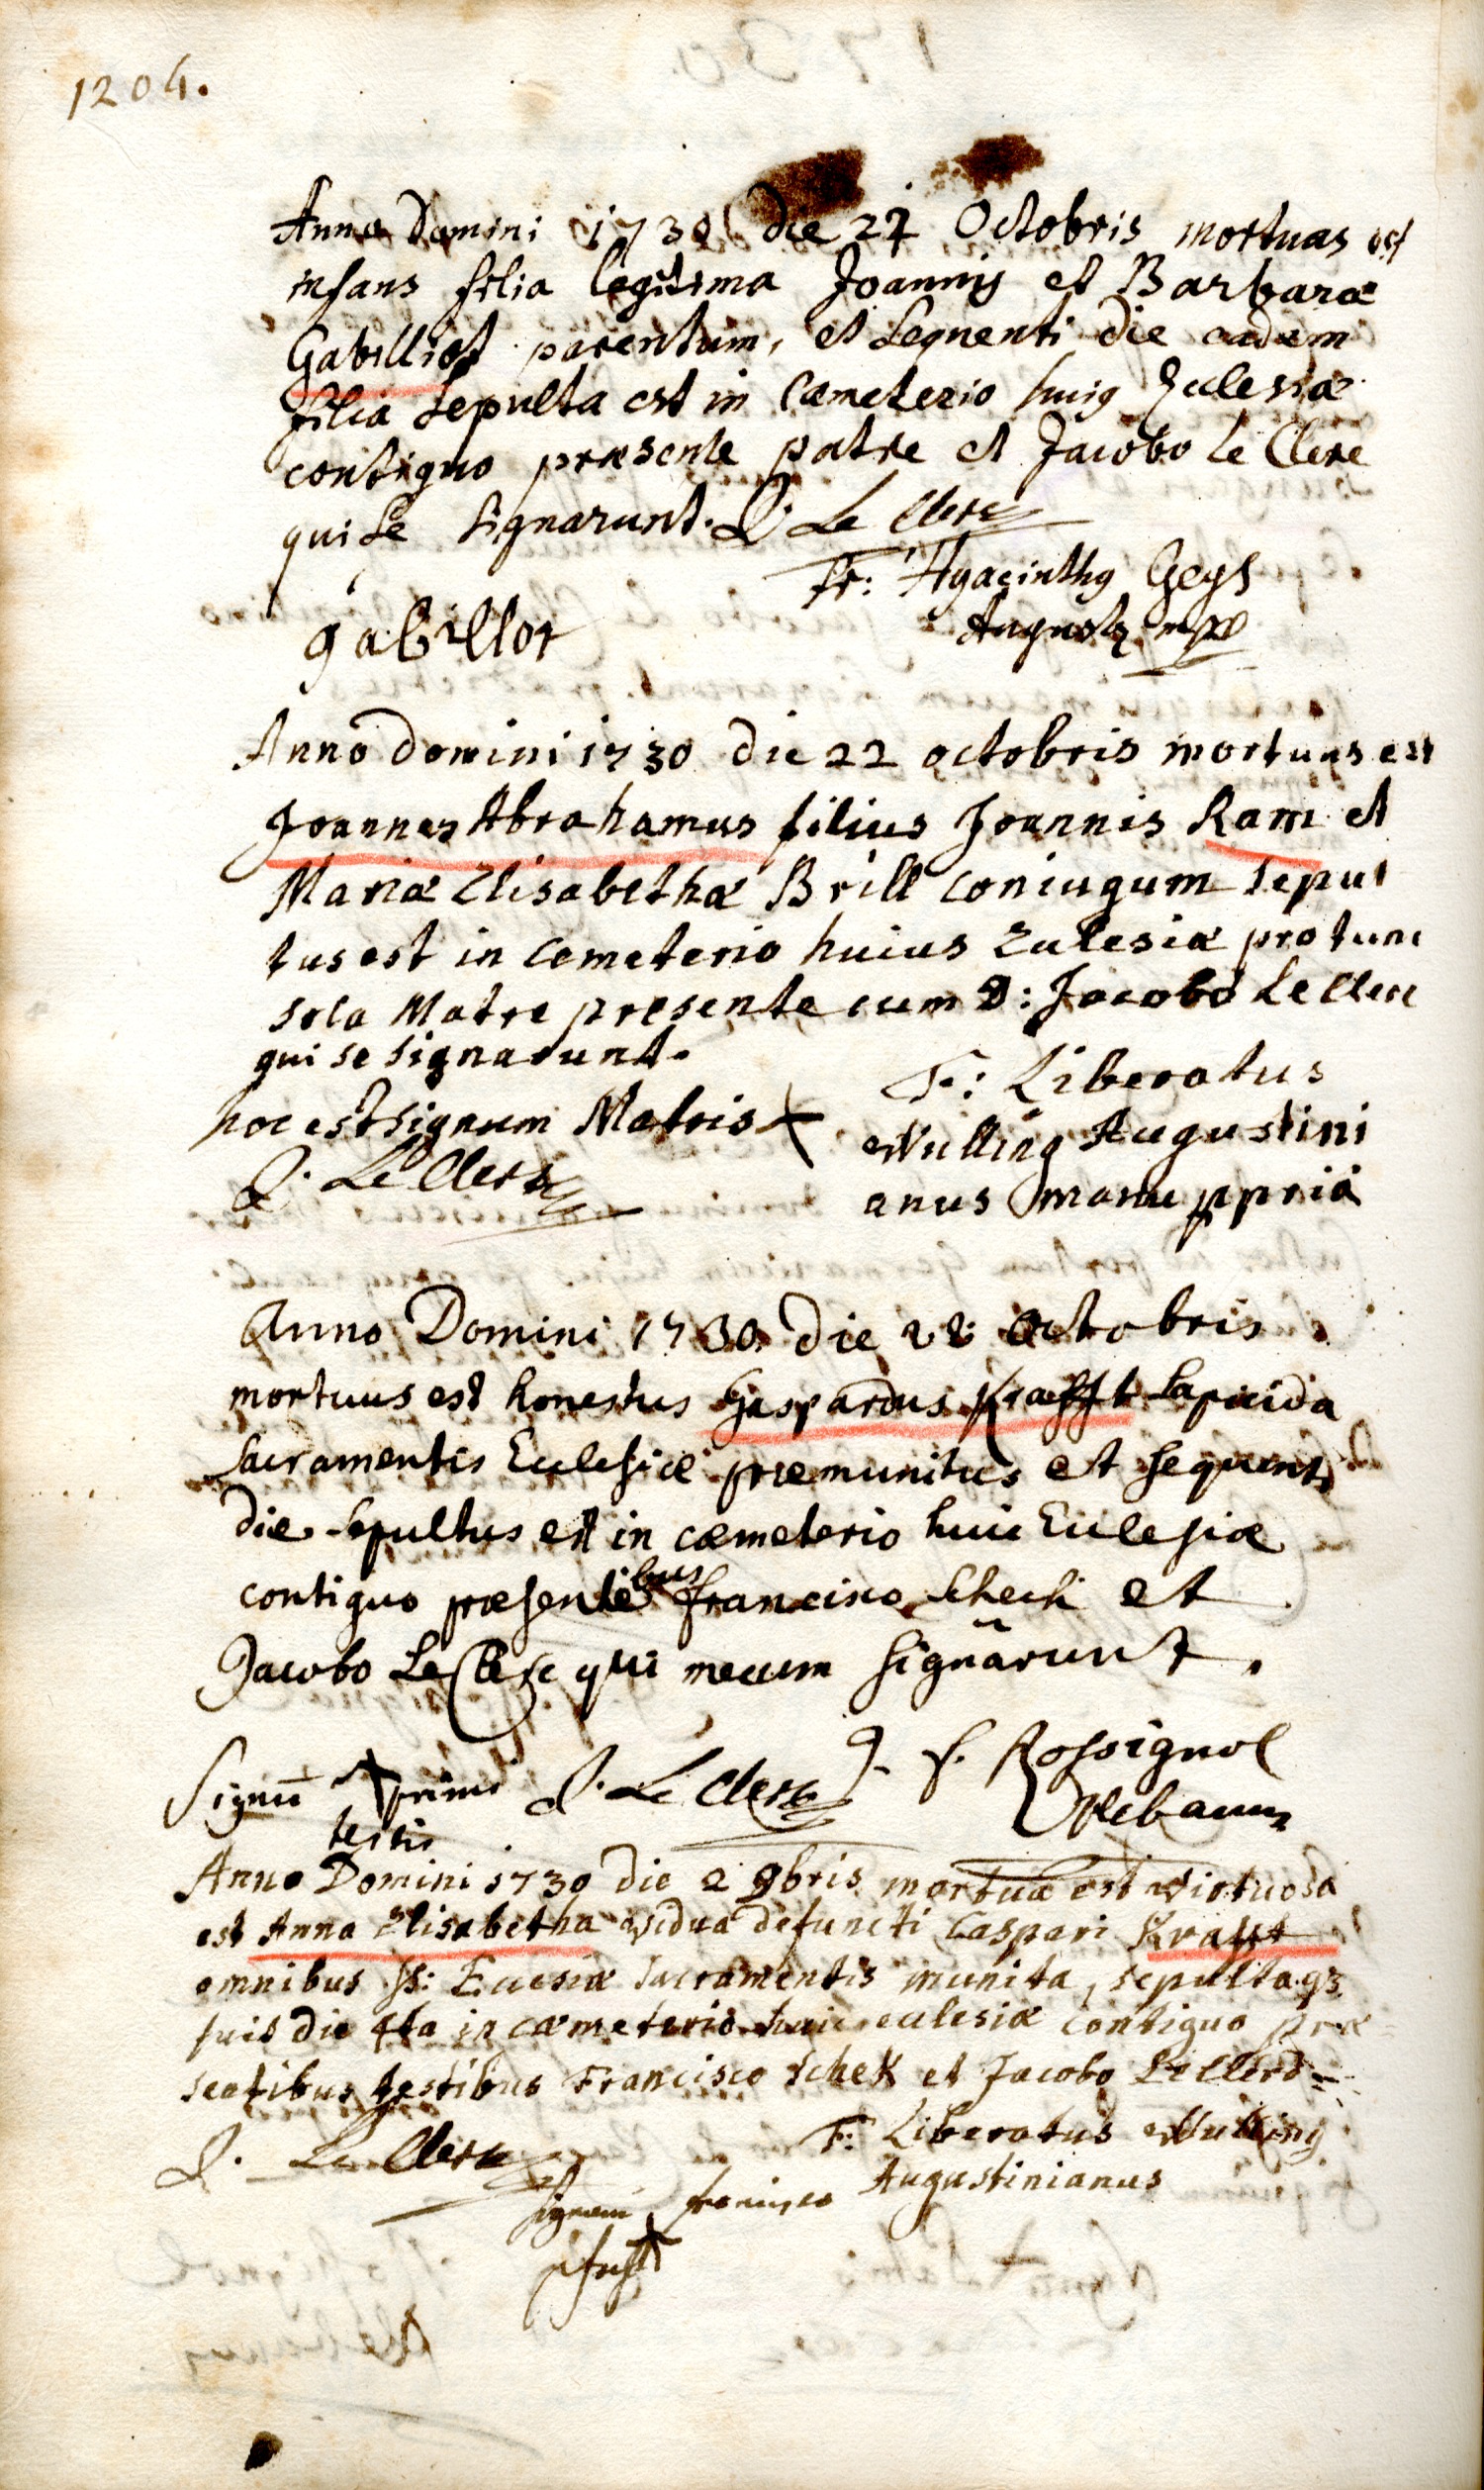 1204.
Anno Domini 1730 die 27 Octobris mortuus est
infans filia legitima Joannis et Barbaræ
Gabilliot parentum, et sequenti die eadem
filia sepulta est in Cæmeterio huig Eclesiæ
contiguo præsente patre et Jacobo le Clere
qui se signarunt. J. Le Clerc
fr: Hyacinthg Geys
gabillot
Augustg mpp
Anno Domini 1730 die 22 octobris mortuus est
Joannes Abrahamus filius Joannis Ram et
Mariæ Elisabethæ Brill coniugum sepul
tus est in cemeterio huius Eclesiæ pro tunc
sola Matre presente cum D: Jacobo Le Clerc
qui se signarunt.
F: Liberatus
hoc est signum Matris +
Wulling Augustini
J. Le Clerc
anus manu ppriâ
Anno Domini 1730 die 28 Octobris
mortuus est honestus Gaspardus Krafft Lapicida
Sacramentis Eclesiæ præmunitus et sequenti
die sepultus est in cæmeterio huic Eclesiæ
contiguo præsentibus francisco Scheck et
Jacobo Le Clerc qui mecum signârunt.
Signū + primi testis
J. Le Clerc
J. f. Rossignol
Plebanus
Anno Domini 1730 die 2 9bris mortua est virtuosa
est Anna Elisabetha vidua defuncti Caspari Krafft
omnibus SS: Ecclesiæ Sacramentis munita, sepultaq3
fuit die 4ta in cæmeterio huic eclesiæ contiguo præ=
sentibus testibus Francisco Schek et Jacobo Le Clerc
J. Le Clerc
F: Liberatus Wulling
Augustinianus
signum francisco
+